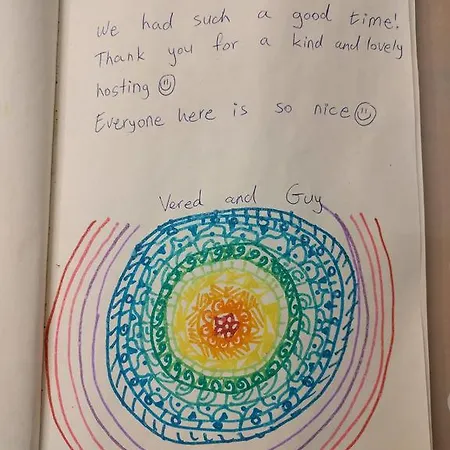 We had such a good time!
Thank you for a kind and lovely
hosting ☺
Everyone here is so nice ☺
Vered and Guy